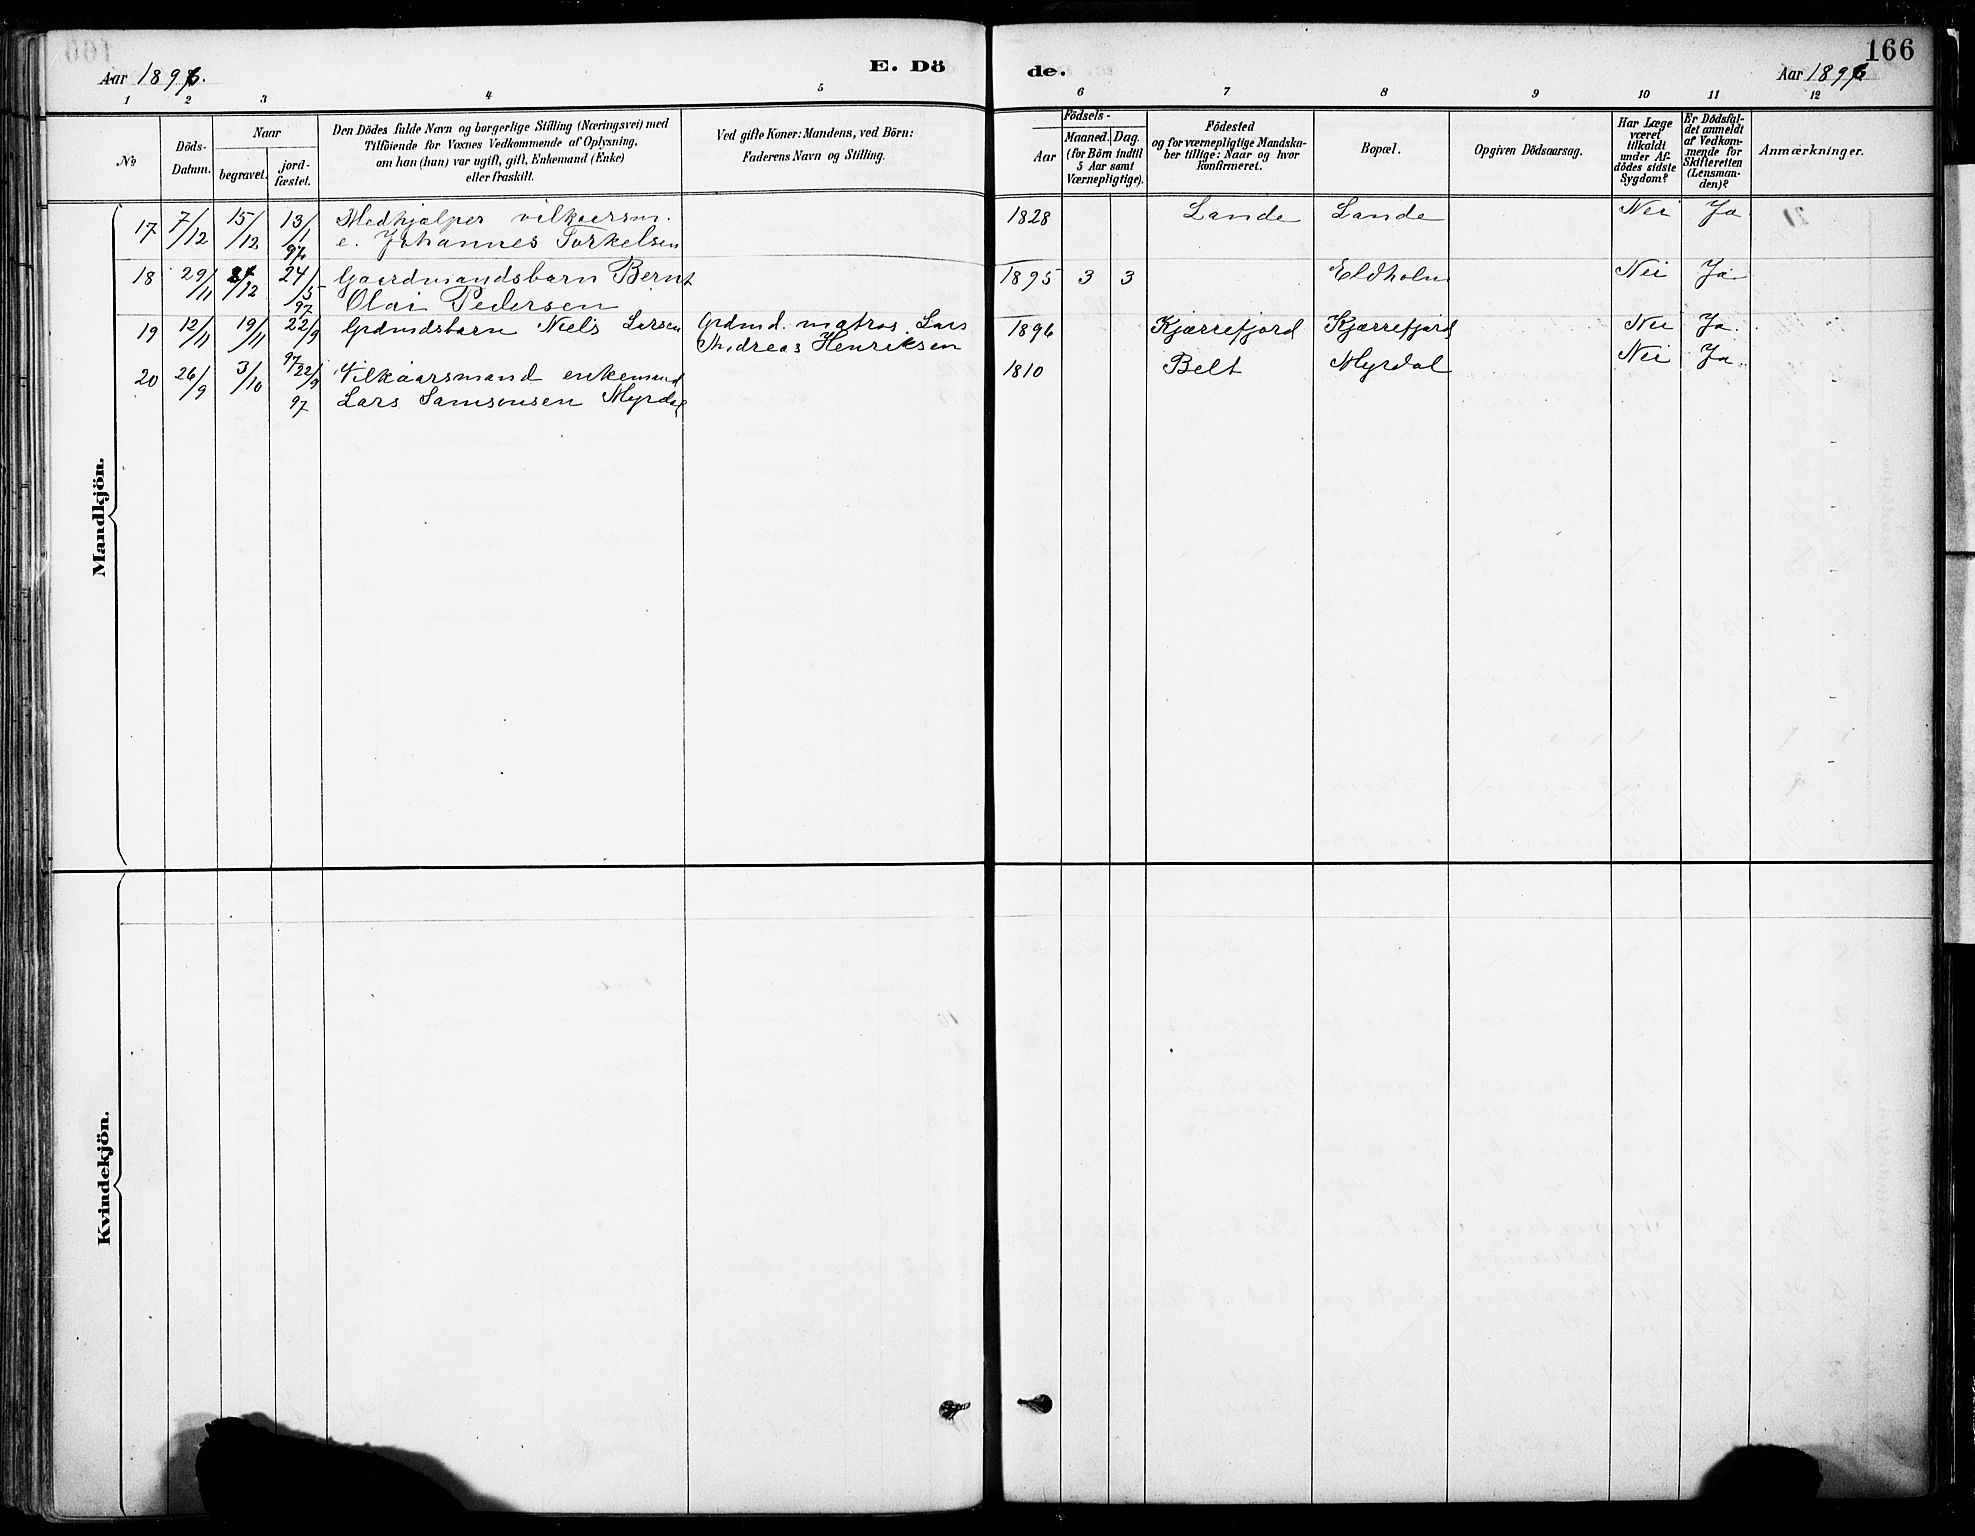 166
Aar 1896.
E. Dö
de.
Aar 1896
1 2 3 4 5 6 7 8 9 10 11 12
No
Döds-
Datum.
Naar
begravet.
jord-
fæstet.
Den Dödes fulde Navn og borgerlige Stilling (Næringsvei) med
Tilföiende for Voxnes Vedkommende af Oplysning,
om han (hun) var ugift, gift, Enkemand (Enke)
eller fraskilt.
Ved gifte Koner: Mandens, ved Börn:
Faderens Navn og Stilling.
Födsels-
Aar
Maaned. Dag.
(for Börn indtil
5 Aar samt
Værnepligtige).
Födested
og for værnepligtige Mandska-
ber tillige: Naar og hvor
konfirmeret.
Bopæl.
Opgiven Dödsaarsag.
Har Læge
været
tilkaldt
under Af-
dödes sidste
Sygdom?
Er Dödsfal-
det anmeldt
af Vedkom-
mende for
Skifteretten
(Lensman-
den)?
Anmærkninger.
Mandkjön.
17 7/12 15/12 13/1 97 Medhjælper vilkaarsm. 1828 Lande Lande Nei Ja
e. Johannes Torkelsen
18 29/11 /12 24/5 97 Gaardmandsbarn Bernt 1895 3 3 Eldholm Nei Ja
Olai Pedersen
19 12/11 19/11 22/9 97 Grdmdsbarn Niels Larsen Grdmd. matros Lars 1896 Kjærrefjord Kjærrefjord Nei Ja
Andreas Henriksen
20 26/9 3/10 22/9 97 Vilkaarsmand enkemand 1810 Belt Myrdal Nei Ja
Lars Samsonsen Myrdal
Kvindekjön.